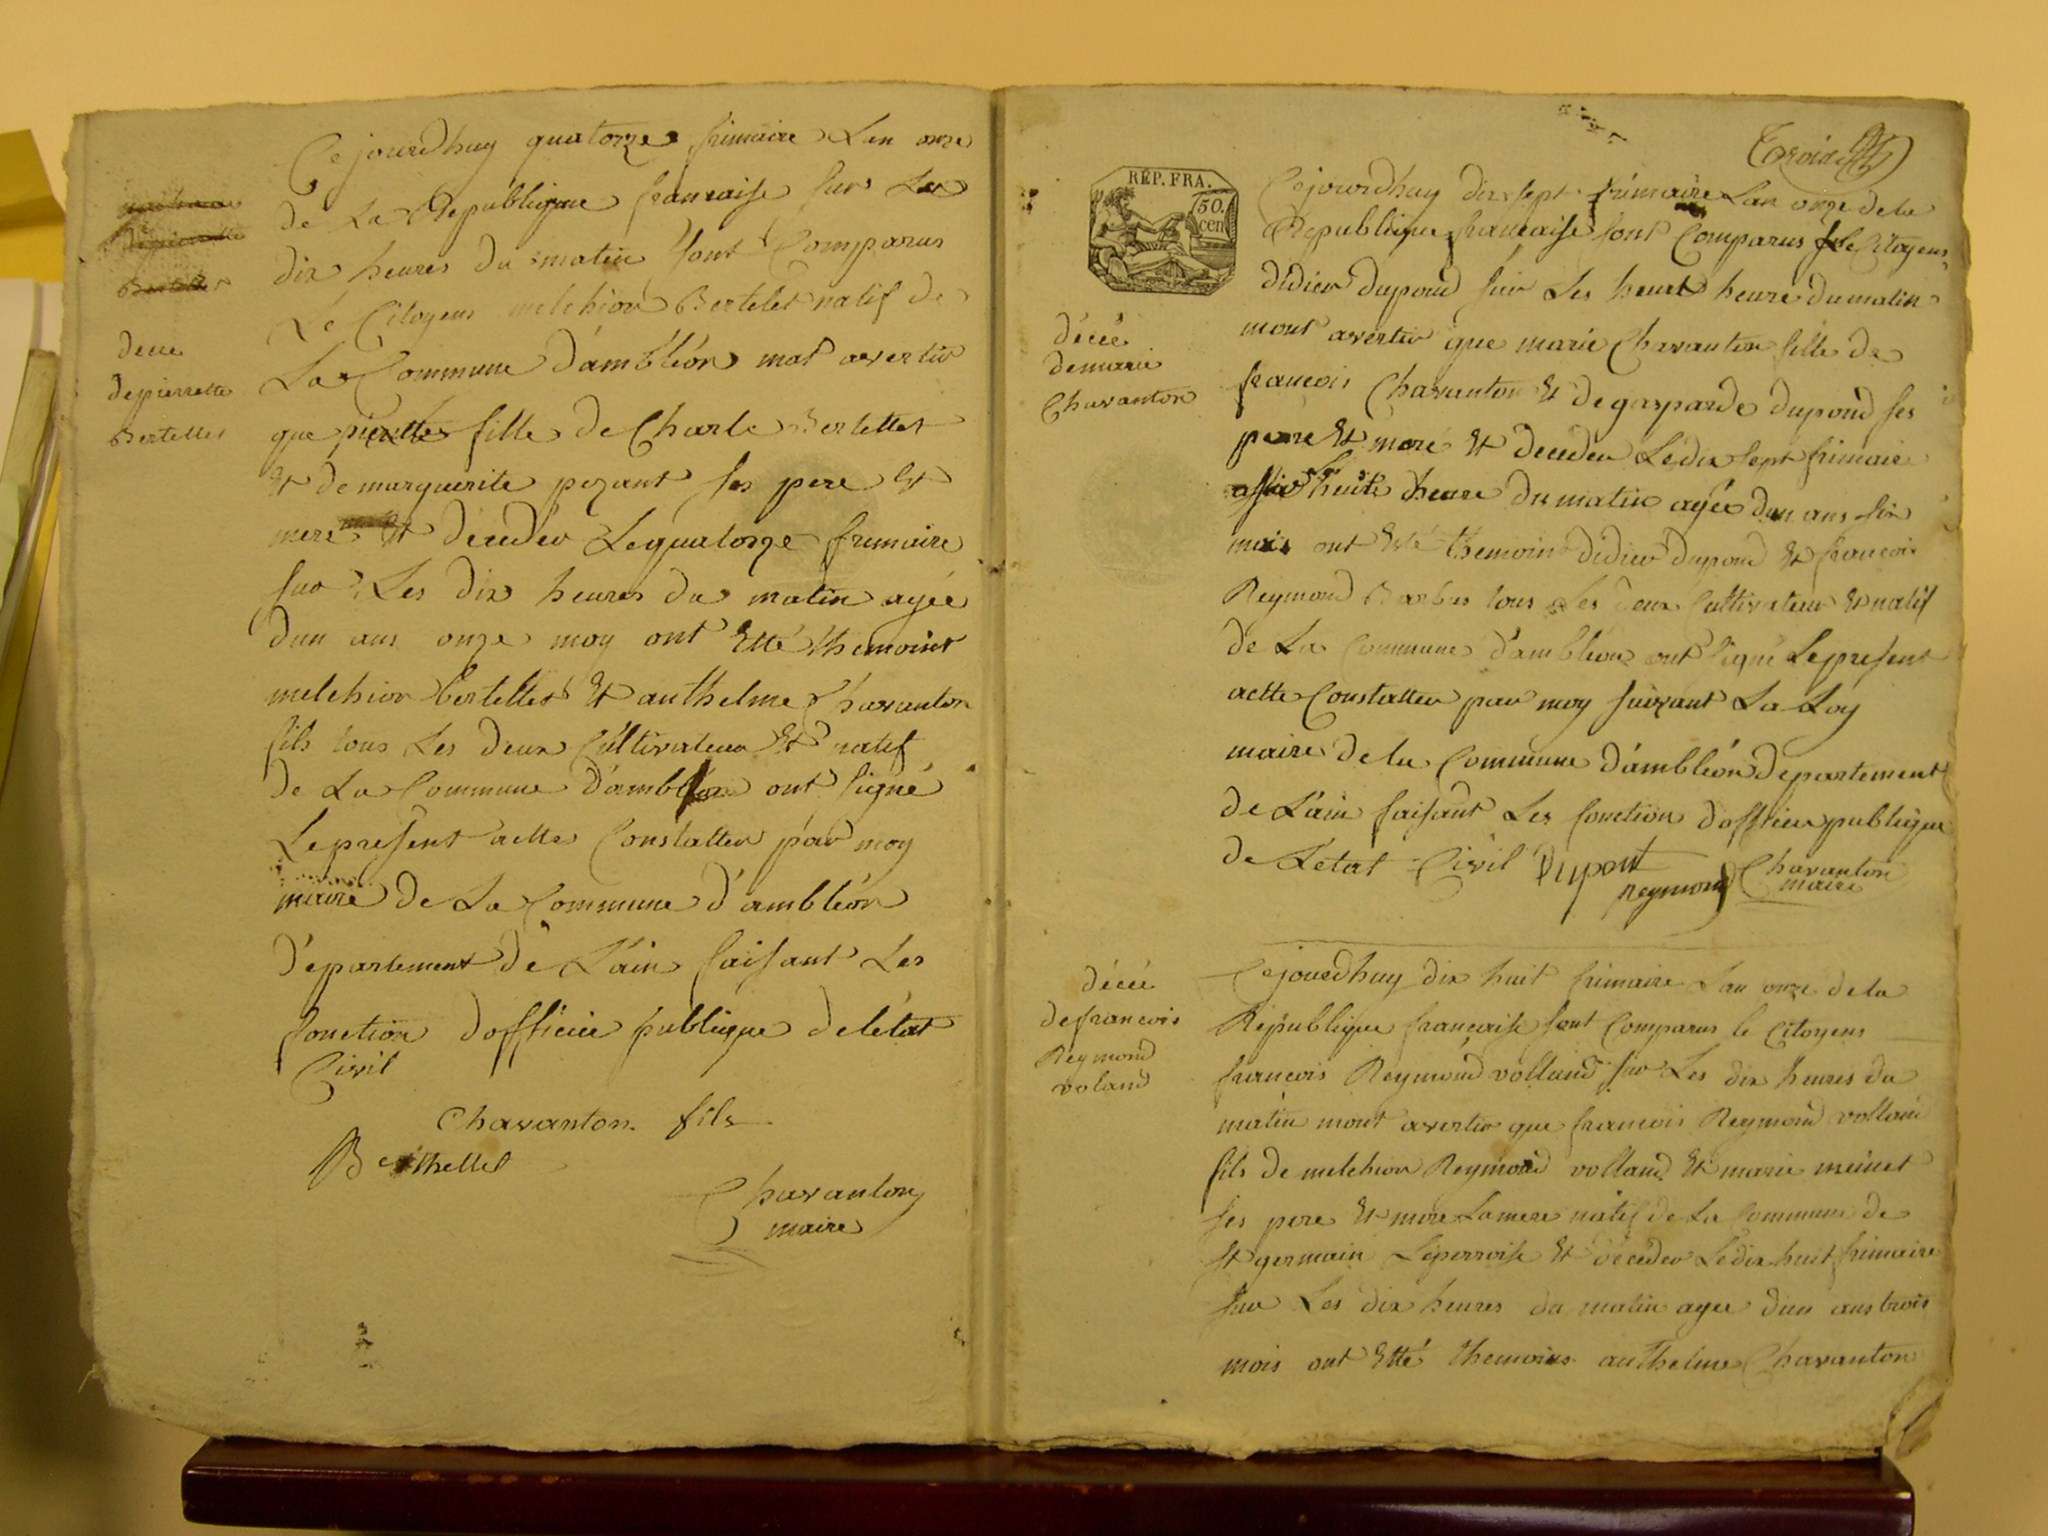 Cejourdhuy quatorze frimaire Lan onze
de La Republique francaise sur Les
dix heures du matin sont Comparus
Le Citoyens melchior Bertelet natif de
La Commune d'ambléon mat avertir
que pierrette fille de Charle Bertellet
Et de marguerite pozant ses pere Et
mere Et décédér Lequatorze frimaire
sur Les dix heures du matin agée
dun ans onze moy ont Etté themoins
melchior bertellet Et anthelme Chavanton
fils tous Les deux Cultivateur Et natif
de La Commune d'ambléon ont signé
Lepresent acte Constatter par moy
maire de La Commune d'ambléon
département de L'ain faisant Les
fonction dofficie publique deletat
Civil
Chavanton fils
Berthellet
Chavanton
maire
depierrette
Bertellet
décée
depierrette
Bertellet
Troix
RÉP. FRA.
50.
cen
Cejourdhuy dix sept frimaire Lan onze dela
Republique francaise sont Comparus Le Citoyens
didier dupond sur Les heure du matin
mont avertir que marie Chavanton fille de
francois Chavanton Et degasparde dupond ses
pere Et mere Et décéder Ledix sept frimaire
huite heure du matin agée dun ans six
mois ont Eté themoin didier dupond Et francois
Reymond Barbus tous Les deux Cultivateur Et natif
de La Commune d'ambléon ont signé Lepresent
actte Constatter par moy suivant La Loy
maire dela Commune d'ambléon departement
de L'ain faisant Les fonction dofficier publique
de L'etat Civil Dupont
Reymond Chavanton
maire
décée
demarie
Chavanton
Cejourdhuy dix huit frimaire Lan onze dela
Republique francaise sont Comparus le Citoyens
francois Reymond volland sur Les dix heures du
matin mont avertir que francois Reymond volland
fils de melchior Reymond volland Et marie meinet
ses pere Et mere Lamere natif de La Commune de
st germain Léparroisse Et décéder Ledix huit frimaire
sur Les dix heures du matin agee dun ans trois
mois ont Etté themoins anthelme Chavanton
décée
defrancois
Reymond
voland